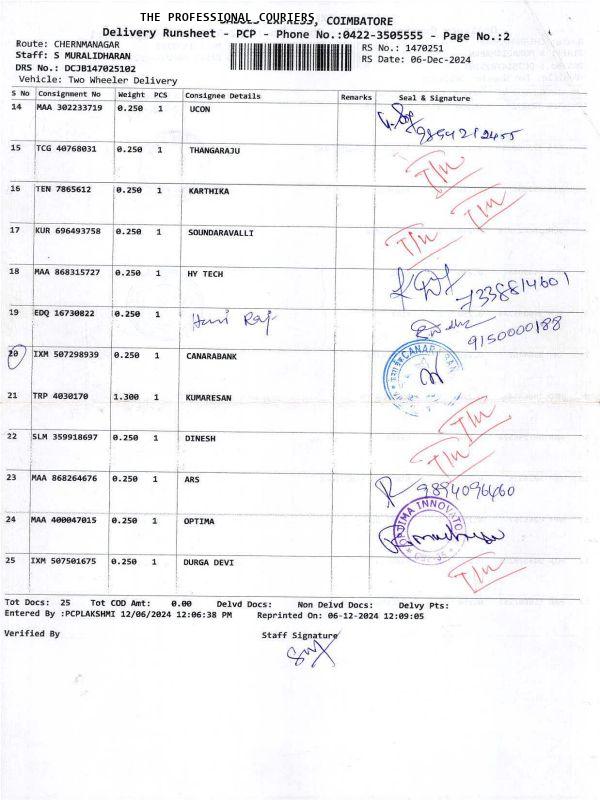 THE PROFESSIONAL COURIERS, COIMBATORE
Delivery Runsheet - PCP - Phone No.:0422-3505555 - Page No.:2
Route: CHERNMANAGAR
Staff: S MURALIDHARAN
DRS No.: DCJB147025102
Vehicle: Two Wheeler Delivery
RS No.: 1470251
RS Date: 06-Dec-2024
S No Consignment No Weight PCS Consignee Details Remarks Seal & Signature
14 MAA 302233719 0.250 1 UCON
15 TCG 40768031 0.250 1 THANGARAJU T/N
16 TEN 7865612 0.250 1 KARTHIKA T/N
17 KUR 696493758 0.250 1 SOUNDARAVALLI T/N
18 MAA 868315727 0.250 1 HY TECH 7338814601
19 EDQ 16730822 0.250 1 Hari Raj 9150000188
20 IXM 507298939 0.250 1 CANARABANK
21 TRP 4030170 1.300 1 KUMARESAN T/N
22 SLM 359918697 0.250 1 DINESH T/N
23 MAA 868264676 0.250 1 ARS 9894096460
24 MAA 400047015 0.250 1 OPTIMA
25 IXM 507501675 0.250 1 DURGA DEVI T/N
Tot Docs: 25 Tot COD Amt: 0.00 Delvd Docs: Non Delvd Docs: Delvy Pts:
Entered By :PCPLAKSHMI 12/06/2024 12:06:38 PM Reprinted On: 06-12-2024 12:09:05
Verified By Staff Signature